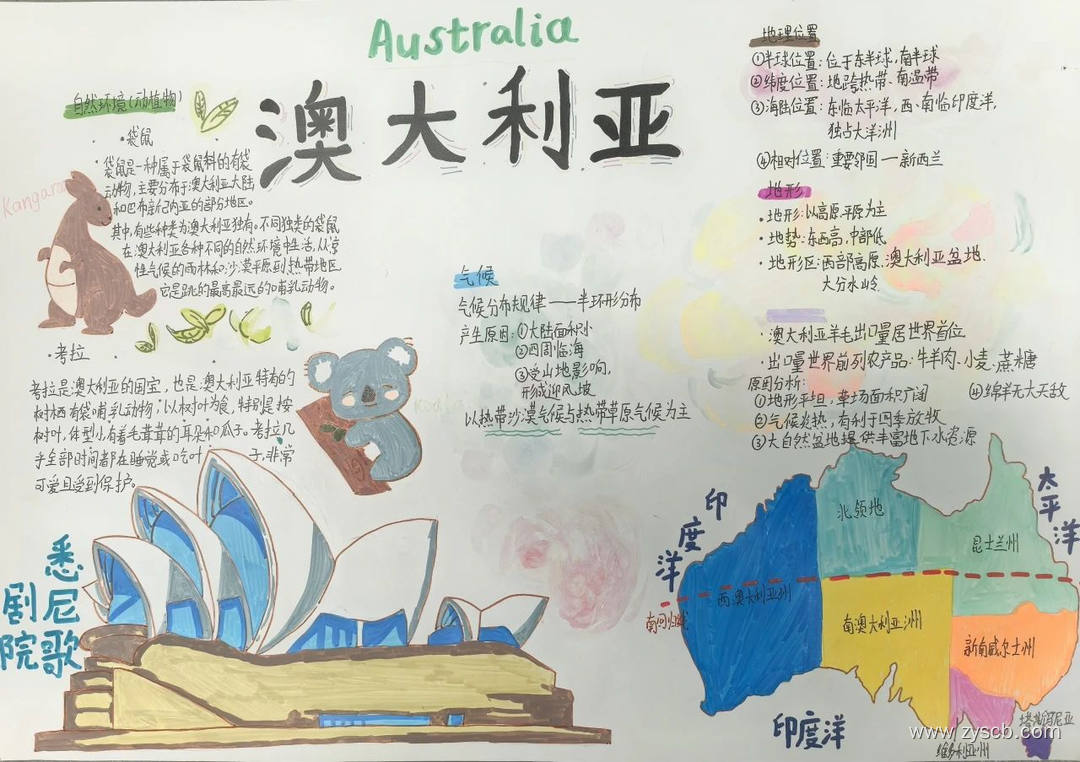 Australia
澳大利亚
自然环境(动植物)
·袋鼠
袋鼠是一种属于袋鼠科的有袋
动物,主要分布于澳大利亚大陆
和巴布亚纽内亚的部分地区。
其中,有些种类为澳大利亚独有。不同独类的袋鼠
在澳大利亚各种不同的自然环境中生活,从凉
性气候的雨林和沙漠平原到热带地区
它是跳的最高最远的哺乳动物。
Kangaroo
·考拉
考拉是澳大利亚的国宝,也是澳大利亚特有的
树栖有袋哺乳动物,以树叶为食,特别是桉
树叶,体型小,有着毛茸茸的耳朵和爪子。考拉几
乎全部时间都在睡觉或吃叶子,非常
可爱且受到保护。
悉尼歌
剧院
气候
气候分布规律——半环形分布
产生原因:①大陆面积小
②四周临海
③受山地影响,
形成迎风坡
以热带沙漠气候与热带草原气候为主
地理位置
①半球位置:位于东半球,南半球
②纬度位置:地跨热带、南温带
③海陆位置:东临太平洋,西、南临印度洋,
独占大洋洲
④相对位置:重要邻国一新西兰
地形
·地形:以高原平原为主
·地势:东西高,中部低
·地形区:西部高原、澳大利亚盆地、
大分水岭
·澳大利亚羊毛出口量居世界首位
·出口量世界前列农产品:牛羊肉、小麦、蔗糖
原因分析:
①地形平坦,草场面积广阔
④绵羊无大天敌
②气候炎热,有利于四季放牧
③大自然盆地提供丰富地下水资源
印度洋
太平洋
北领地
昆士兰州
西澳大利亚州
南回归线
南澳大利亚州
新南威尔士州
印度洋
塔斯玛尼亚
维多利亚州
www.zyscb.com